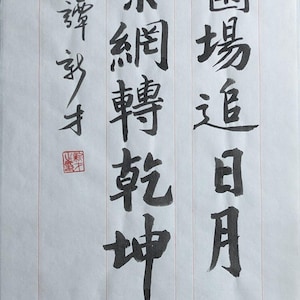 場追日月
網轉乾坤
譚新才